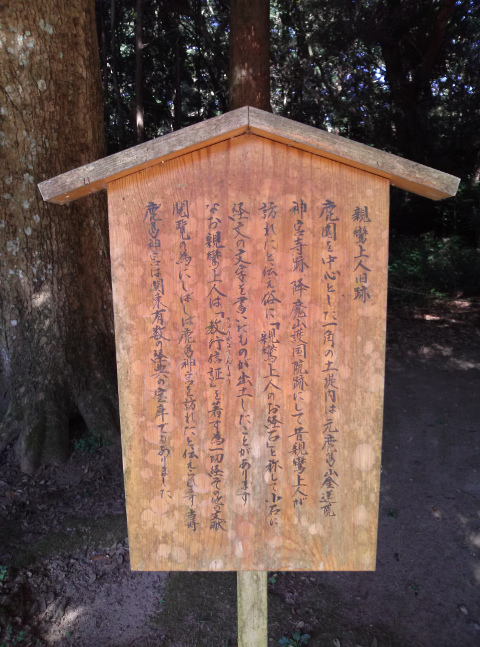 親鸞上人旧跡
鹿園を中心とした一角の土堤内は元鹿島山金蓮院
神宮寺跡、降魔山護国院跡にして昔親鸞上人が
訪れたと伝え俗に「親鸞上人のお経石」と称して小石に
経文の文字を書いたものが出土したことがあります
なお親鸞上人は「教行信証」を著す為一切経その他文献
閲覧の為にしばしば鹿島神宮を訪れたと伝えます 当時
鹿島神宮は関東有数の経典の宝庫でもありました